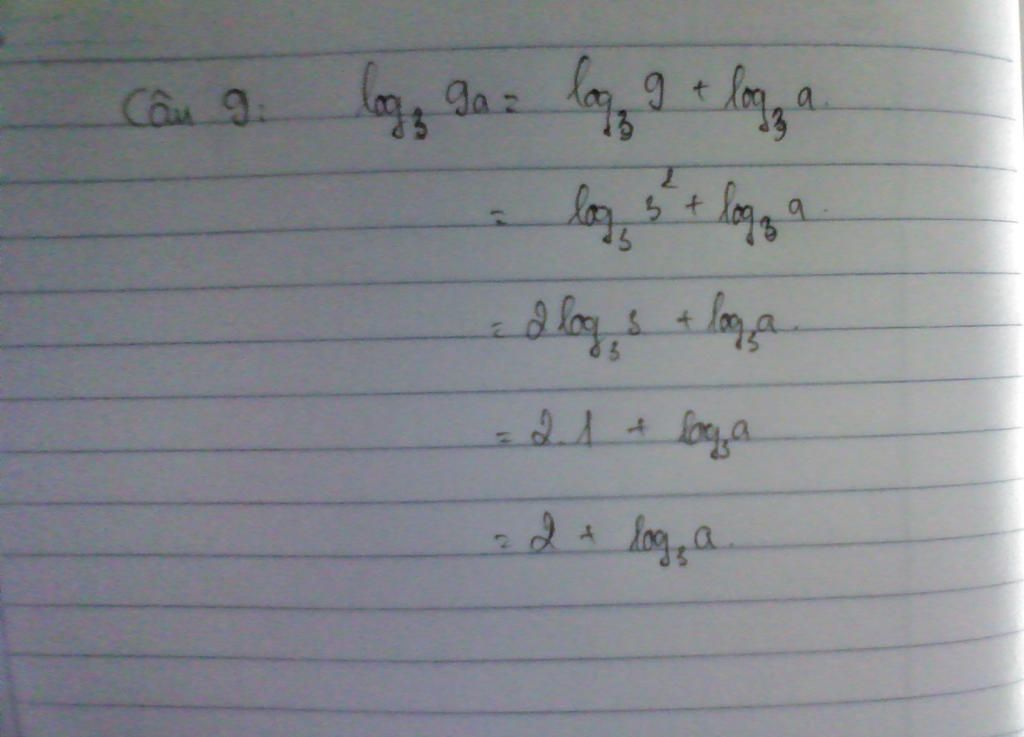 Câu 9: log₃ 9a = log₃ 9 + log₃ a.
= log₃ 3² + log₃ a.
= 2 log₃ 3 + log₃ a.
= 2.1 + log₃ a
= 2 + log₃ a.